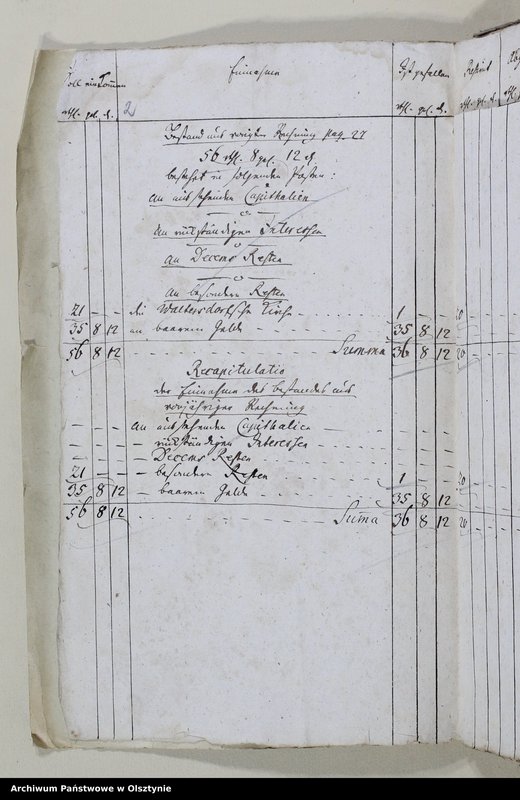 Soll einkommen Einnahme Ist gefallen Restirt
rthl. gl. d. 2 rthl. gl. d. rthl. gl. d.
Bestand aus voriger Rechnung pag. 27
56 rthl. 8 gl. 12 d.
bestehet in folgenden Posten:
An ausstehenden Capithalien
An rückständigen Interessen
An Decems Resten
An besondern Resten
21 – – die Waltersdorfsche Kirche 1 – – 20
35 8 12 an baarem Gelde 35 8 12
56 8 12 Summa 36 8 12 20
Recapitulatio
der Einnahme des Bestandes aus
vorjähriger Rechnung
– – – An ausstehenden Capithalien – – –
– – – – rückständigen Interessen – – –
– – – – Decems Resten – – –
21 – – – besondern Resten 1 – – 20
35 8 12 – baarem Gelde 35 8 12
56 8 12 Suma 36 8 12 20
Archiwum Państwowe w Olsztynie